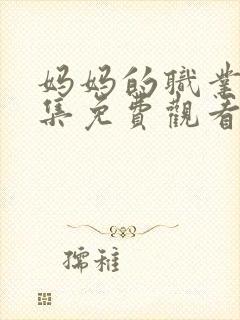 妈妈的職業
集免費觀看
孺稚